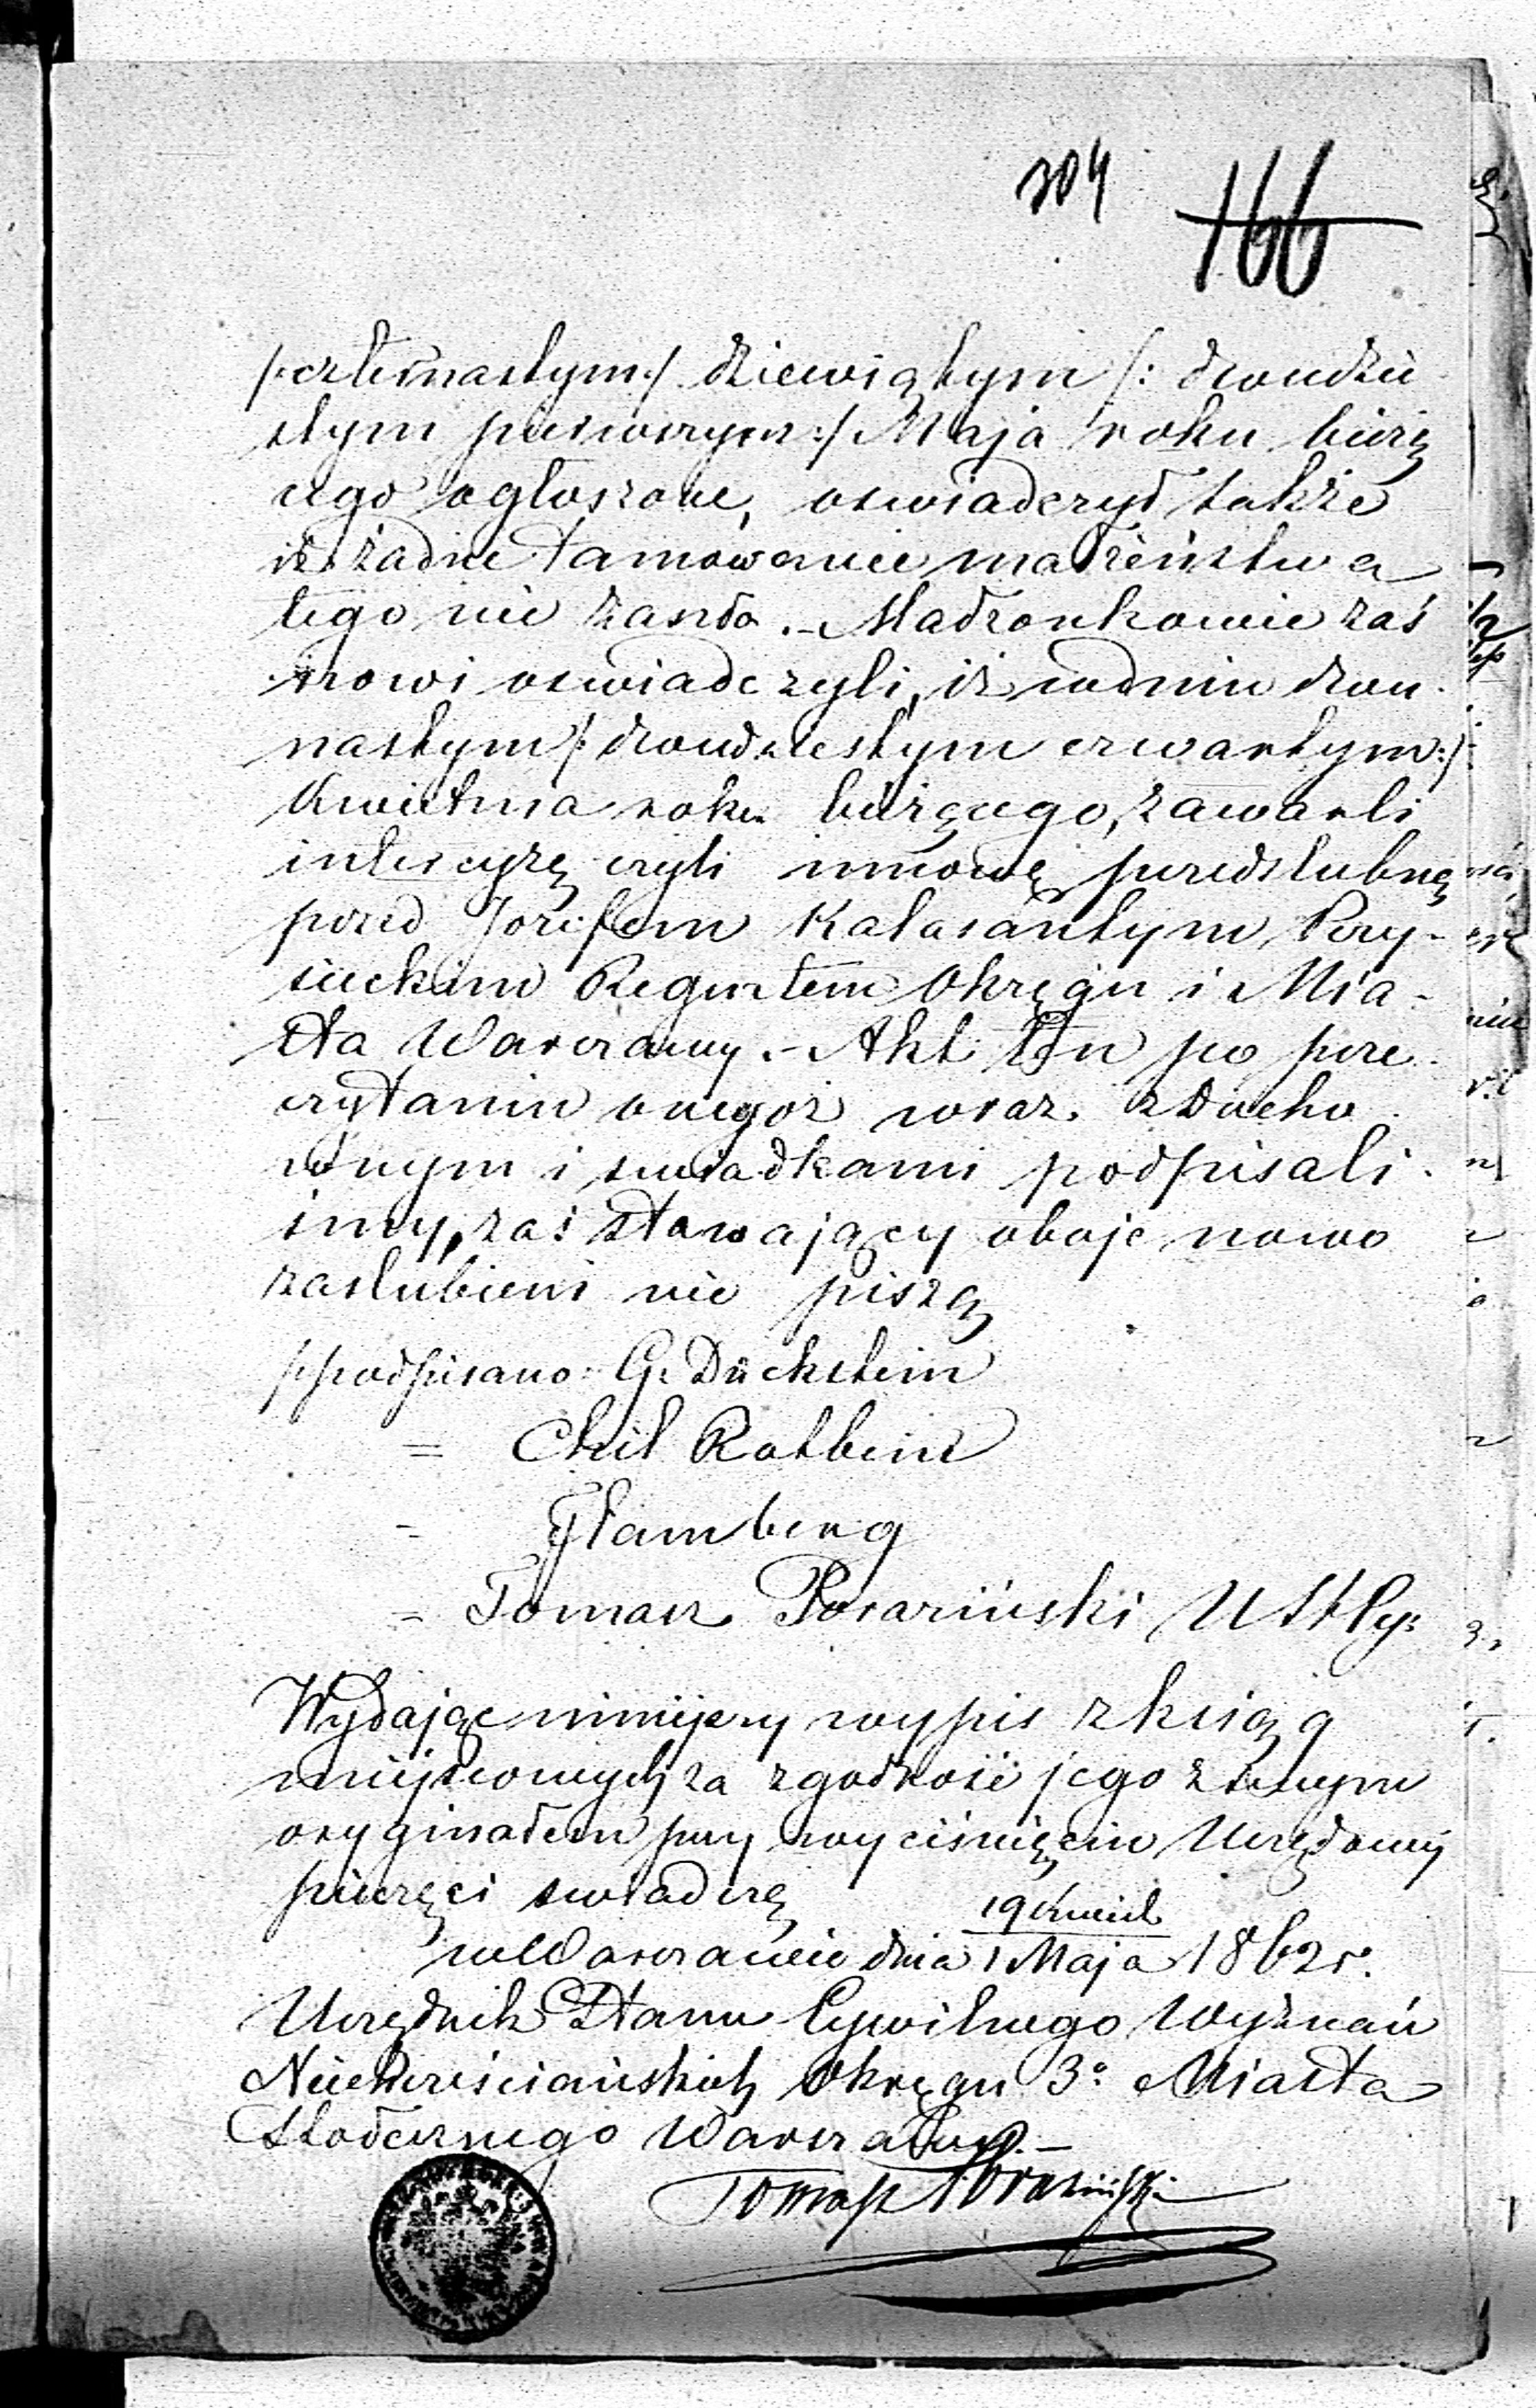 304 166
/:czternastym:/ dziewiątym /: dwudzie
stym pierwszym:/ Maja roku bieżą
cego ogłoszone, oswiadczył także
iż żadne tamowanie małżeństwa
tego nie zaszło. - Małżonkowie zaś
nowi oswiadczyli, iż w dniu dwu
nastym /: dwudziestym czwartym:/
Kwietnia roku bieżącego, zawarli
intercyzę czyli umowę przedślubną
przed Józefem Kalasantym Przy-
sieckim Regentem Okręgu i Mia-
sta Warszawy. - Akt ten po prze
czytaniu onegoż wraz z Ducho
wnym i swiadkami podpisali
śmy, zaś stawający oboje nowo
zaslubieni nie piszą
/:podpisano: G. Dückstein
= Chil Rotbein
- Flamberg
- Tomasz Porazinski U St Cy:
Wydając niniejszy wypis z ksiąg
miejscowych za zgodność jego z
oryginałem przy wyciśnięciu Urzędowej
pieczęci swiadczę
w Warszawie dnia 19 Kwiet / 1 Maja 1862 r.
Urzędnik Stanu Cywilnego Wyznań
Niechrześciańskich Okręgu 3º Miasta
Stołecznego Warszawy. -
Tomasz Porazinski